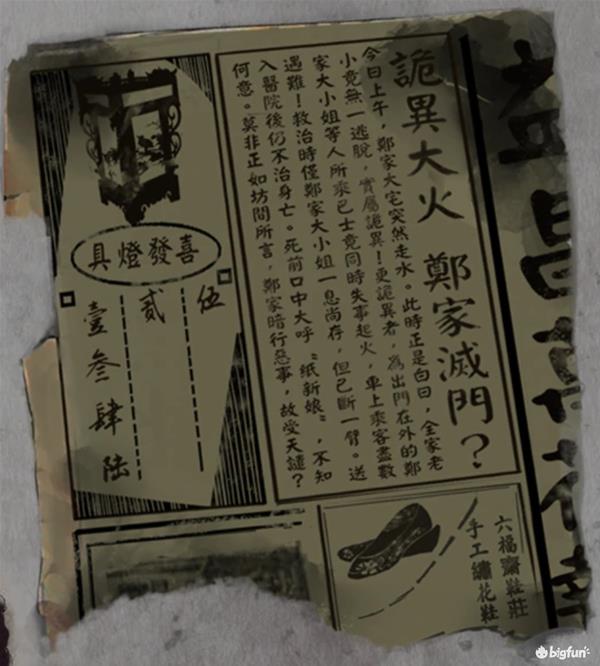 詭異大火 鄭家滅門?
今日上午,鄭家大宅突然走水。此時正是白日,全家老
小竟無一逃脫,實屬詭異!更詭異者,為出門在外的鄭
家大小姐等人所乘巴士竟同時失事起火,車上乘客盡數
遇難!救治時僅鄭家大小姐一息尚存,但已斷一臂。送
入醫院後仍不治身亡。死前口中大呼“纸新娘”,不知
何意。莫非正如坊間所言,鄭家暗行惡事,故受天譴?
喜發燈具
伍
貳
壹叁肆陸
六福齋鞋莊
手工繡花鞋
bigfun